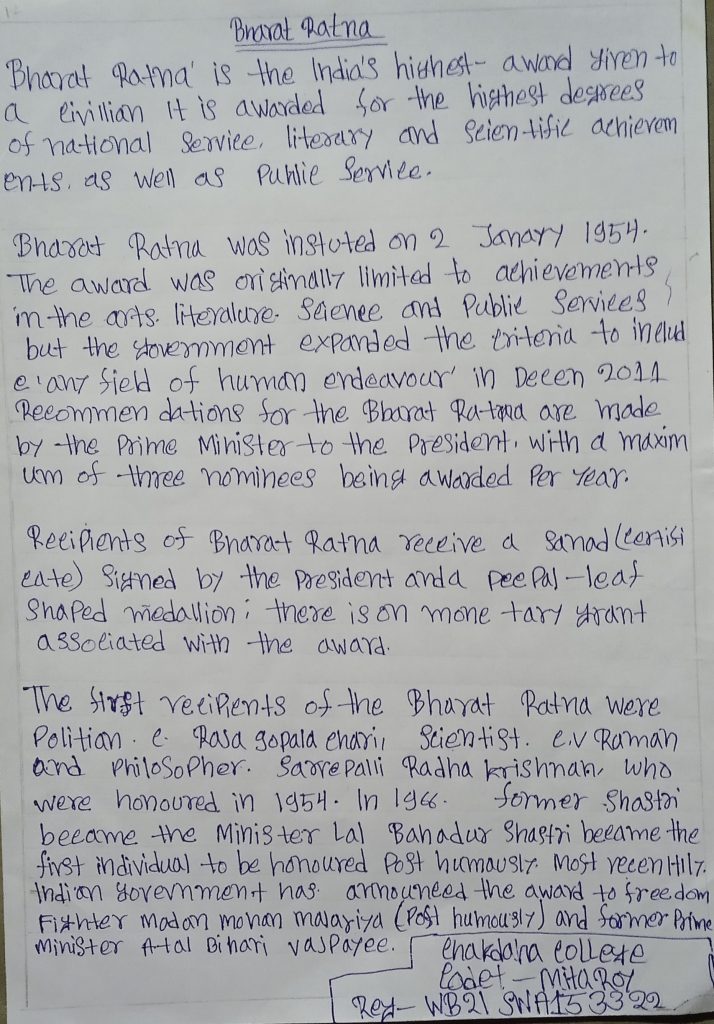 Bharat Ratna
'Bharat Ratna' is the India's highest- award given to
a civillian It is awarded for the highest degrees
of national Service, literary and Scientific achievem
ents. as well as Public Service.
Bharat Ratna was instuted on 2 Janary 1954.
The award was originally limited to achievements
in the arts. literature. Science and Public Services
but the government expanded the criteria to includ
e 'any field of human endeavour' in Decen 2011
Recommen dations for the Bharat Ratna are made
by the Prime Minister to the President, with a maxim
um of three nominees being awarded Per Year.
Recipients of Bharat Ratna receive a Sanad (certifi
cate) Signed by the President and a Pee Pal-leaf
Shaped medallion; there is on mone tary grant
associated with the award.
The first recipients of the Bharat Ratna were
Polition. C. Rasa gopala chari, Scientist. C.V Raman
and Philosopher. Sarve Palli Radha krishnan, who
were honoured in 1954. In 1966. former Shastri
became the Minister Lal Bahadur Shastri became the
first individual to be honoured Post humously. Most recently.
Indian Government has announced the award to freedom
Fighter Madan mohan malaviya (Post humously) and former Prime
Minister Atal Bihari vajPayee.
Chakdaha College
Cadet - Mita Roy
Reg- WB21 SWA153322